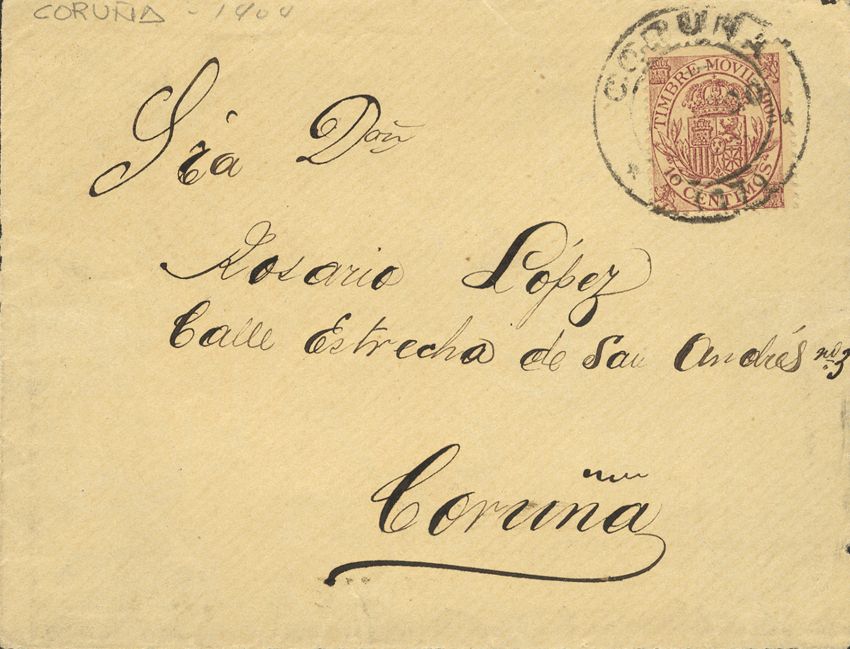 CORUÑA - 1904
CORUÑA
TIMBRE MOVIL
10 CENTIMOS
Sra Dñ
Rosario López
Calle Estrecha de San Andrés nº 3
Coruña